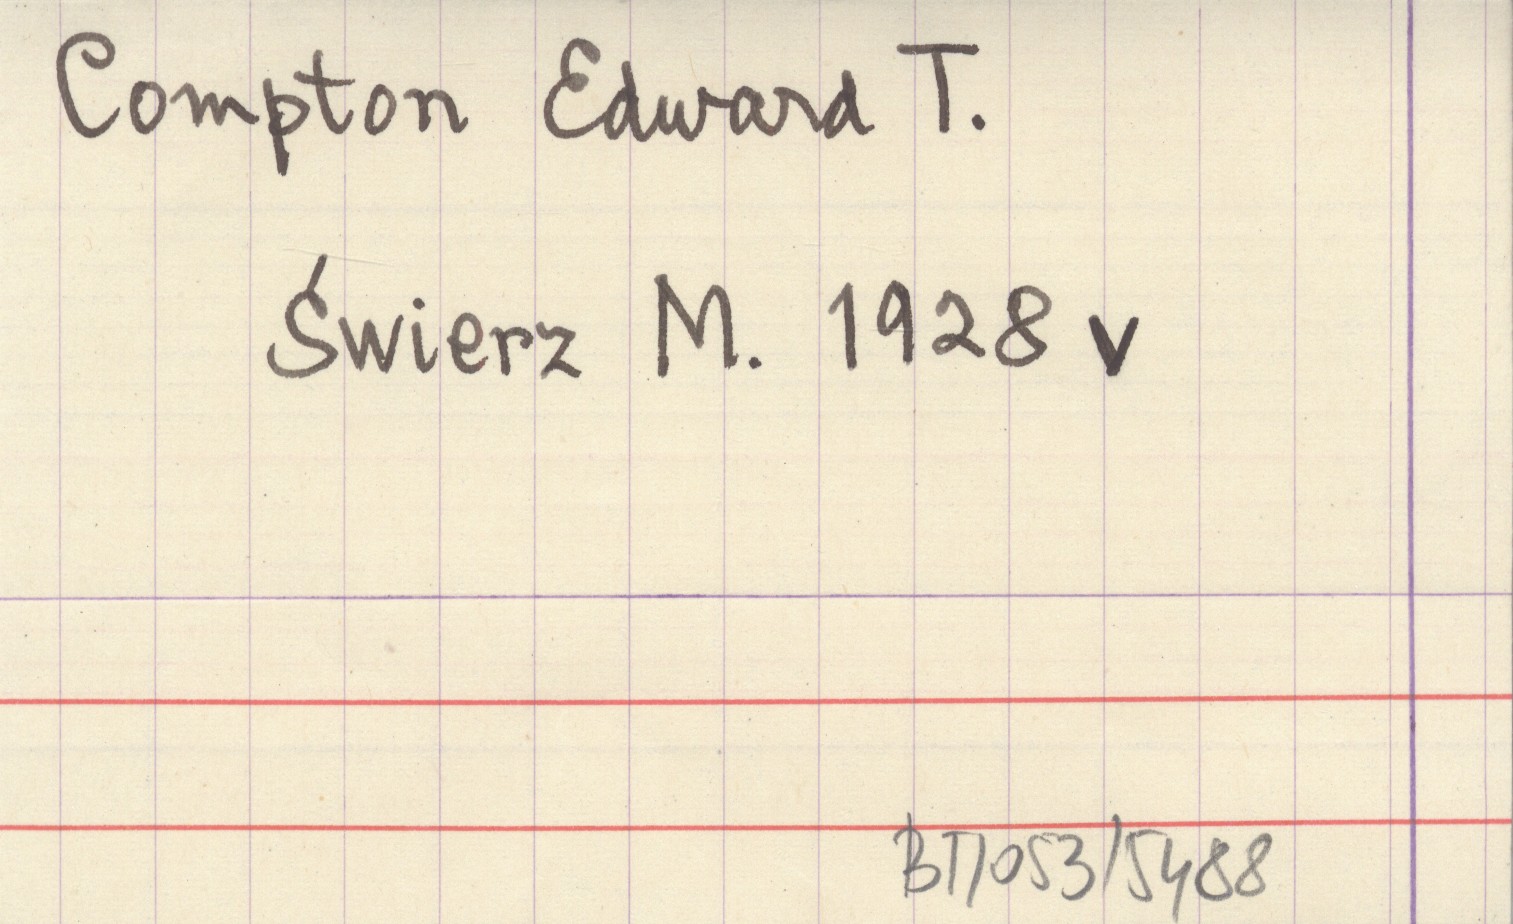 Compton Edward T.
Świerz M. 1928 v
BT/053/5488